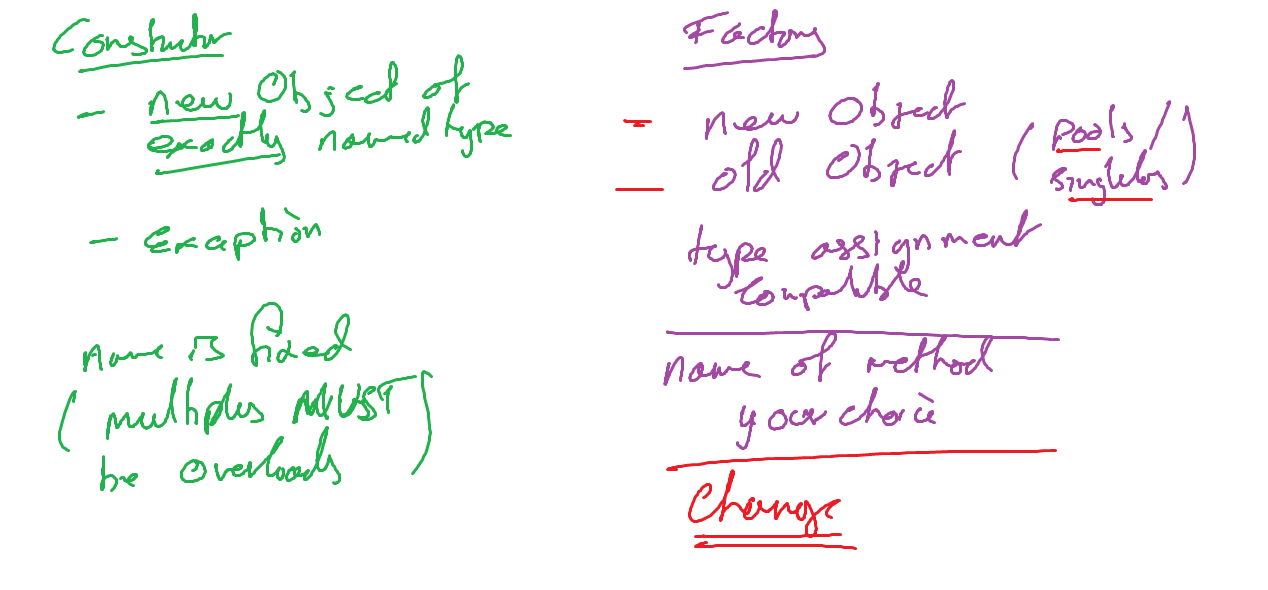 Constructor
- new Object of
exactly named type
- exception
name is fixed
( multiples MUST
be overloads )
Factory
- new Object
- old Object ( pools /
singletons )
type assignment
compatible
name of method
your choice
Change